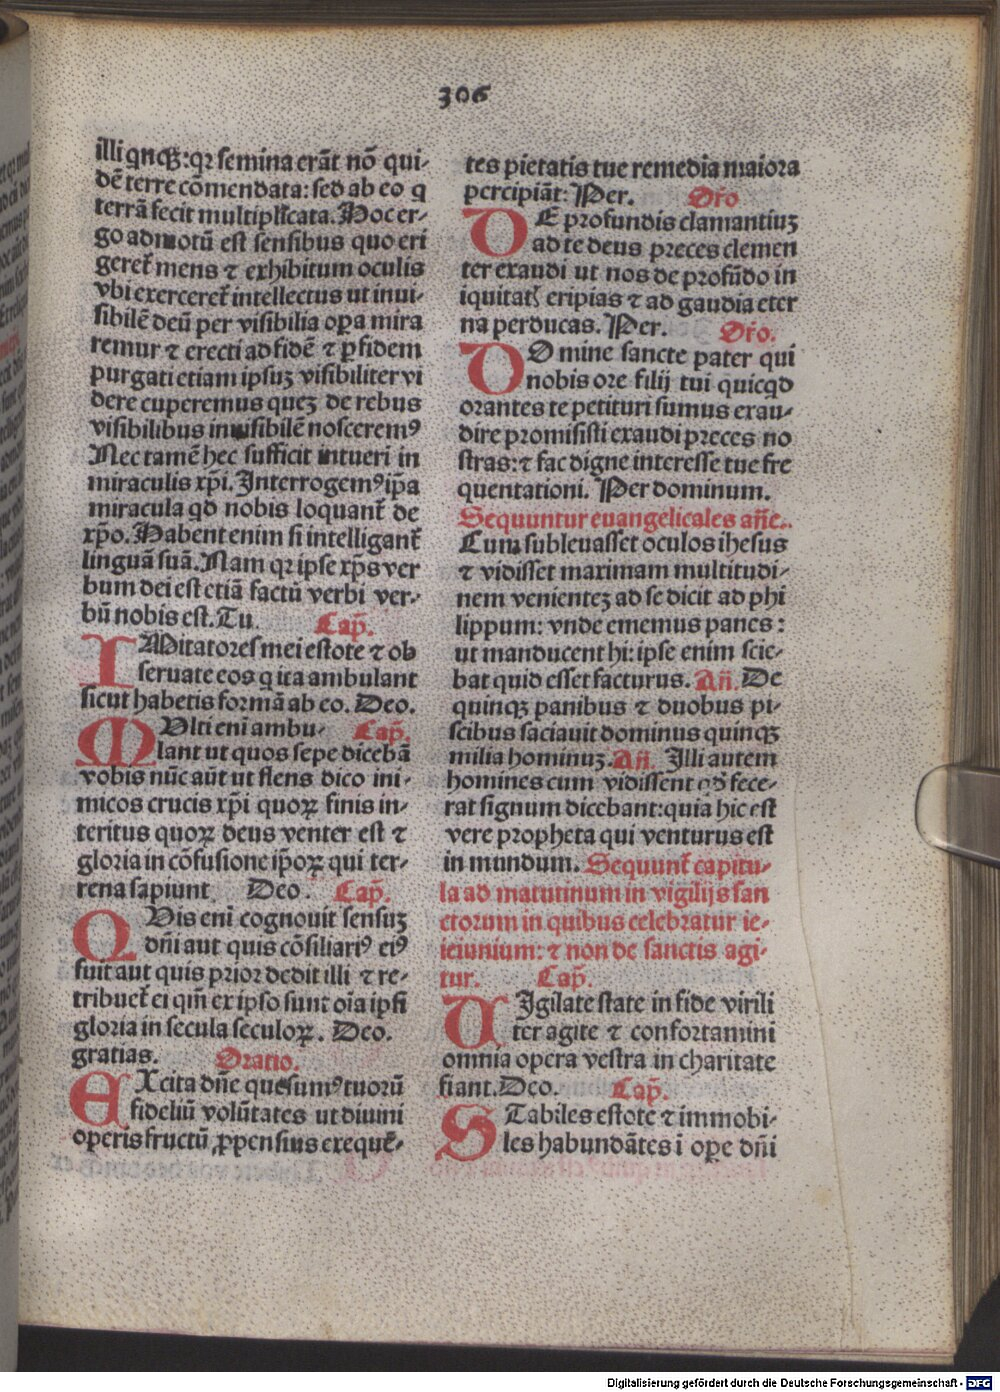 306
illi qnqꝫ: qꝛ semina erāt nō qui-
dē terre cōmendata: sed ab eo q
terrā fecit multiplicata. Hoc er-
go admotū est sensibus quo eri
geret᷑ mens ⁊ exhibitum oculis
vbi exerceret᷑ intellectus ut inui-
sibilē deū per visibilia oꝑa mira
remur ⁊ erecti ad fidē ⁊ ꝑ fidem
purgati etiam ipsuꝫ visibiliter vi
dere cuperemus queꝫ de rebus
visibilibus inuisibilē nosceremꝰ
Nec tamē hec sufficit intueri in
miraculis xp̄i. Interrogemꝰ ip̄a
miracula qd nobis loquant᷑ de
xp̄o. Habent enim si intelligant᷑
linguā suā. Nam qꝛ ipse xp̄s ver
bum dei est etiā factū verbi ver-
bū nobis est. Tu. Cap̄.
IMitatores mei estote ⁊ ob
seruate eos q ita ambulant
sicut habetis formā ab eo. Deo.
MUlti enī ambu- Cap̄.
lant ut quos sepe dicebā
vobis nūc aūt ut flens dico ini-
micos crucis xp̄i quoꝝ finis in-
teritus quoꝝ deus venter est ⁊
gloria in cōfusione ip̄oꝝ qui ter-
rena sapiunt Deo. Cap̄.
QUis enī cognouit sensuꝫ
dn̄i aut quis cōsiliariꝰ eiꝰ
fuit aut quis prior dedit illi ⁊ re-
tribuet᷑ ei qm̄ ex ipso sunt oīa ipsi
gloria in secula seculoꝝ. Deo.
gratias. Oratio.
EXcita dn̄e quesumꝰ tuorū
fideliū volūtates ut diuini
operis fructū ꝓpensius exequē-
tes pietatis tue remedia maiora
percipiāt: Per. Or̄o
DE profundis clamantiuꝫ
ad te deus preces clemen
ter exaudi ut nos de profūdo in
iquitatꝭ eripias ⁊ ad gaudia eter
na perducas. Per. Or̄o.
DOmine sancte pater qui
nobis ore filij tui quicqd
orantes te petituri sumus exau-
dire promisisti exaudi preces no
stras: ⁊ fac digne interesse tue fre
quentationi. Per dominum.
Sequuntur euangelicales añe..
Cum subleuasset oculos ihesus
⁊ vidisset maximam multitudi-
nem venienteꝫ ad se dicit ad phi
lippum: vnde ememus panes:
ut manducent hi: ipse enim scie-
bat quid esset facturus. Añ. De
quinqꝫ panibus ⁊ duobus pi-
scibus saciauit dominus quinqꝫ
milia hominuꝫ. Añ. Illi autem
homines cum vidissent qd fece-
rat signum dicebant: quia hic est
vere propheta qui venturus est
in mundum. Sequunt᷑ capitu-
la ad matutinum in vigilijs san
ctorum in quibus celebratur ie-
ieiunium: ⁊ non de sanctis agi-
tur. Cap̄.
UIgilate state in fide virili
ter agite ⁊ confortamini
omnia opera vestra in charitate
fiant. Deo. Cap̄.
STabiles estote ⁊ immobi-
les habundātes ī oꝑe dn̄i
Digitalisierung gefördert durch die Deutsche Forschungsgemeinschaft - DFG